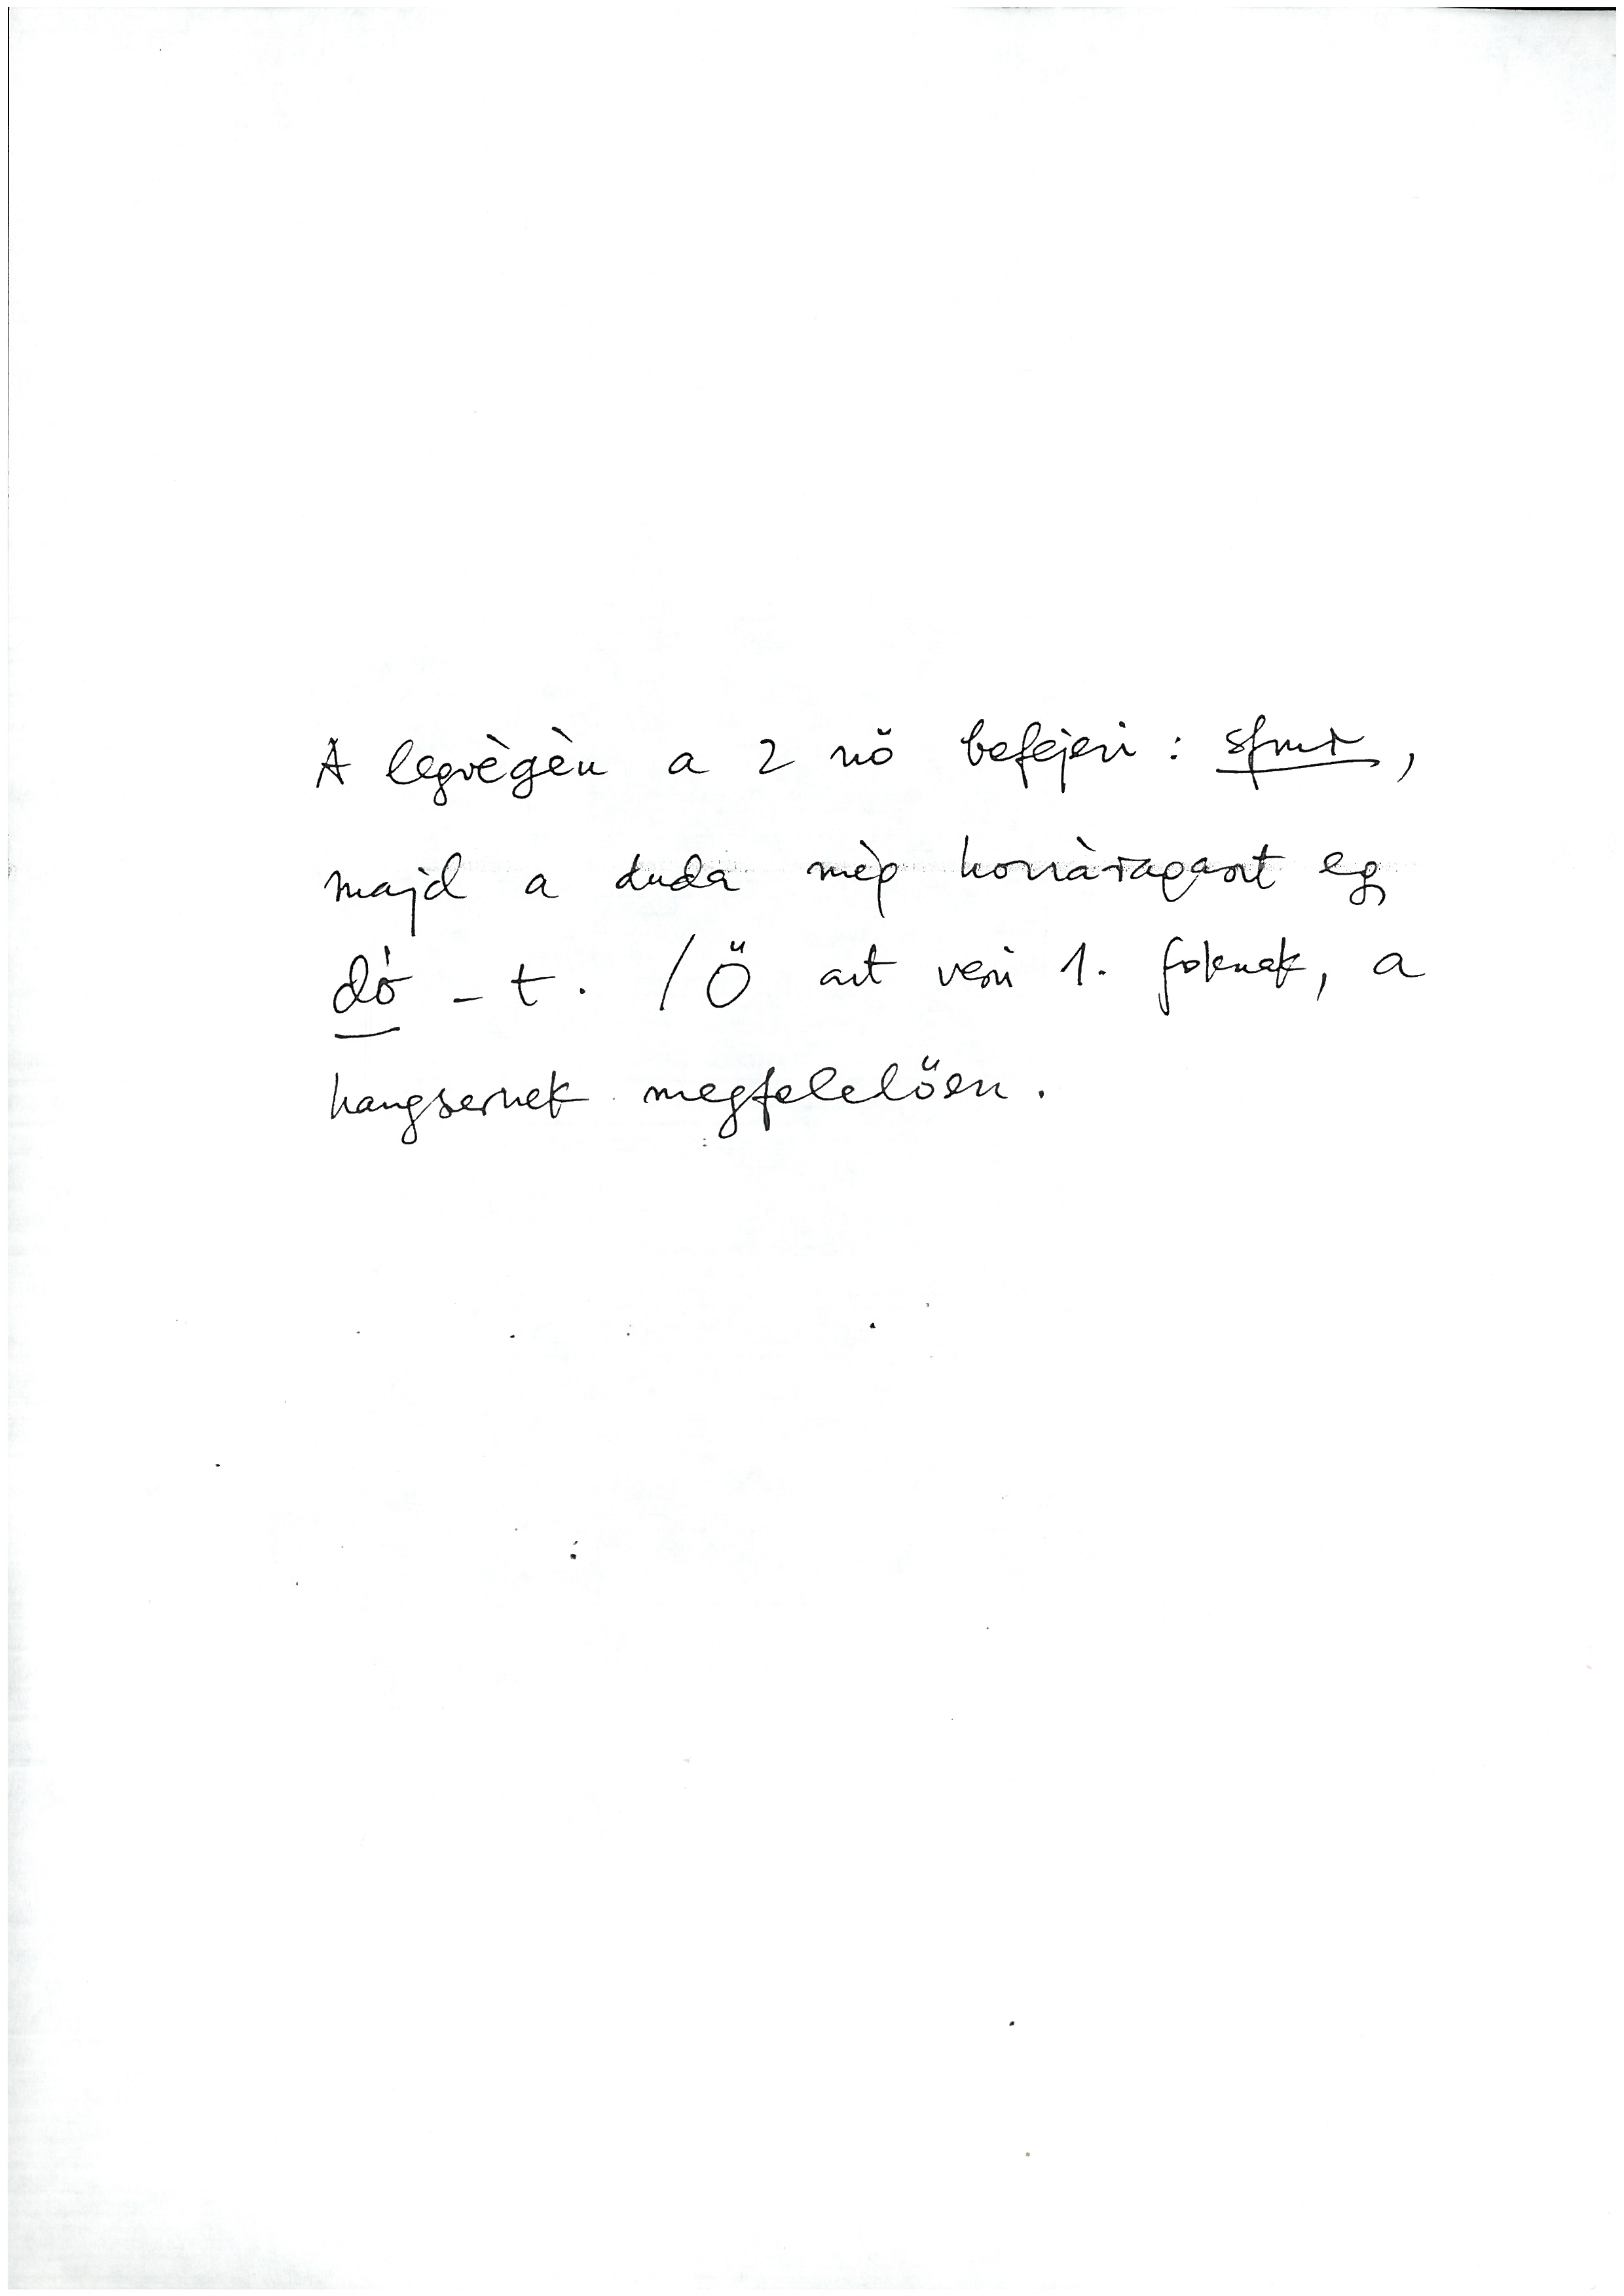 A legvégén a 2 nő befejezi: sfmr,
majd a duda még hozzáragaszt egy
dó - t. /Ő azt veszi 1. foknak, a
hangszernek megfelelően.